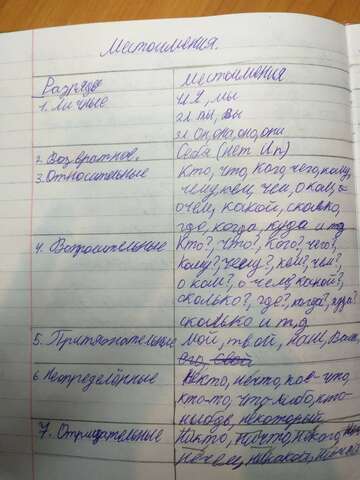 Местоимения.
Разряды Местоимения
1. Личные 1л Я, мы
2л ты, вы
3л он, она, оно, они
2. Возвратное. Себя (нет И.п)
3. Относительные Кто, что, кого, чего, кому,
чему, кем, чем, о ком, о
чём, какой, сколько,
где, когда, куда и т.д
4. Вопросительные Кто?, что?, кого?, чего?,
кому?, чему?, кем?, чем?,
о ком?, о чём?, какой?,
сколько?, где?, когда?, куда?
сколько и т.д
5. Притяжательные Мой, твой, наш, ваш,
его, свой
6 Неопределённые Некто, нечто, кое-что,
кто-то, что-либо, кто-
нибудь, некоторый
7. Отрицательные Никто, ничто, некого,
никакой, ничей